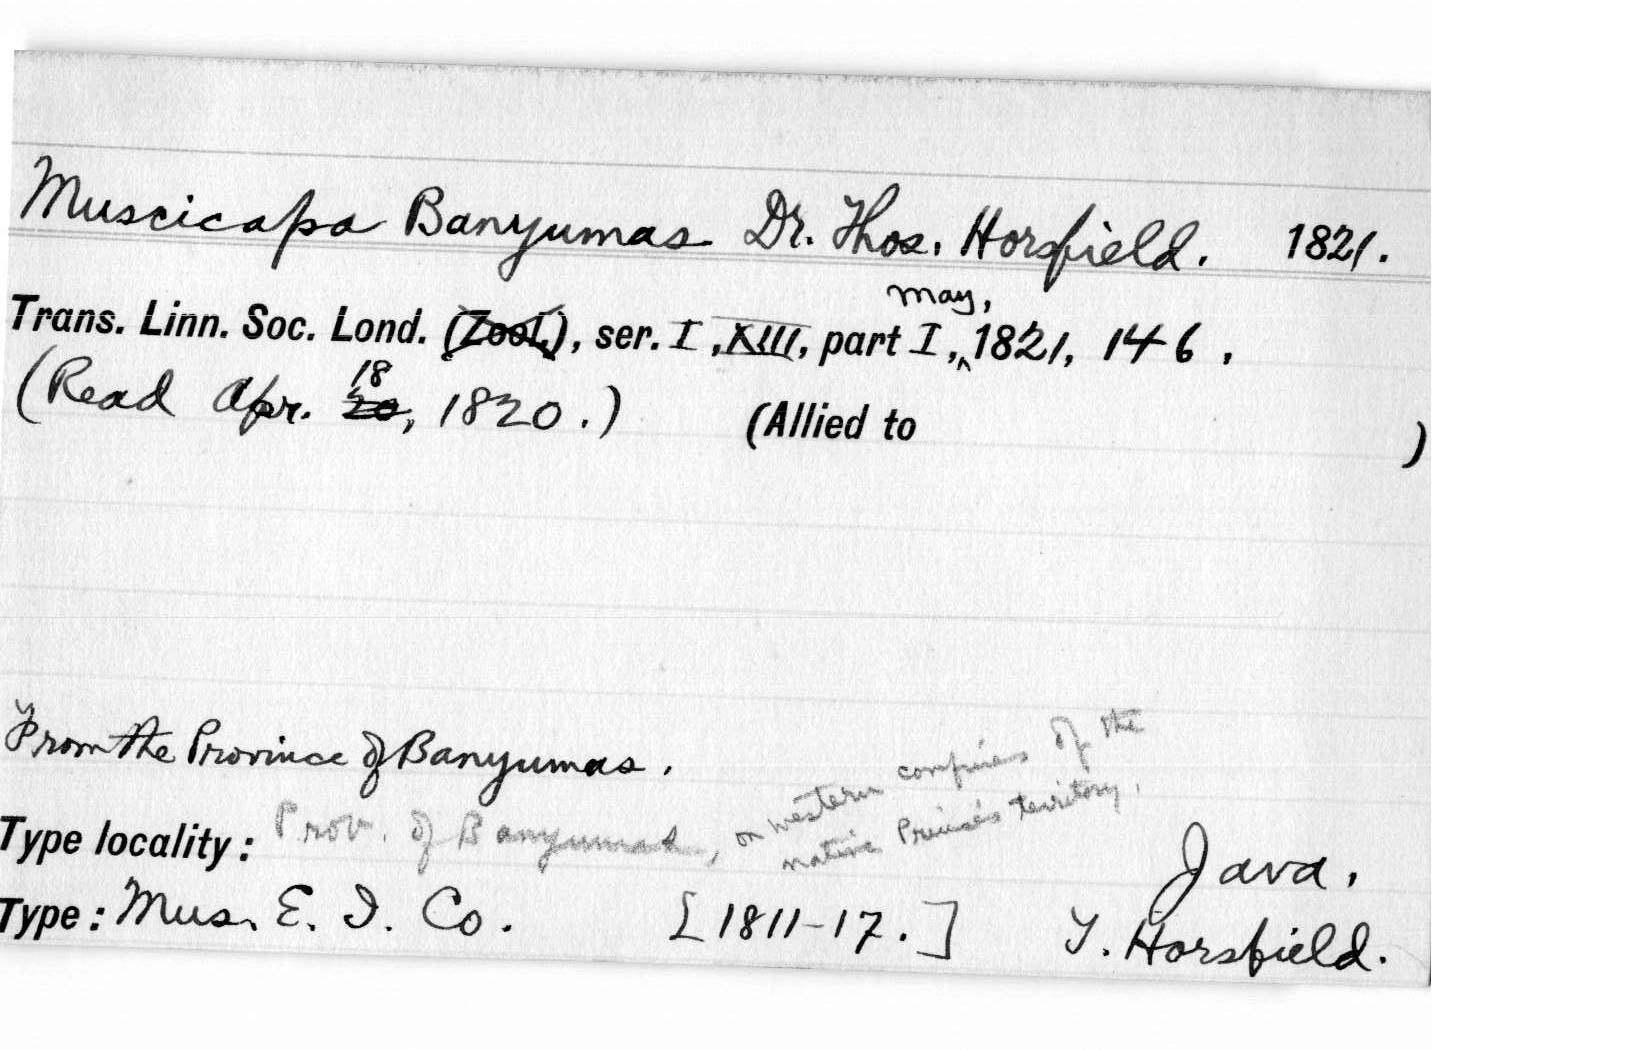 Muscicapa Banyumas Dr. Thos. Horsfield. 1821.
May,
Trans. Linn. Soc. Lond. (Zool.), ser. I, XIII, part I, 1821, 146,
18
(Read Apr. 20, 1820.) (Allied to )
From the Province of Banyumas.
Type locality: Prov. of Banyumas, on western confines of the
native Prince's territory,
Java,
Type: Mus. E. I. Co. [1811-17.] T. Horsfield.